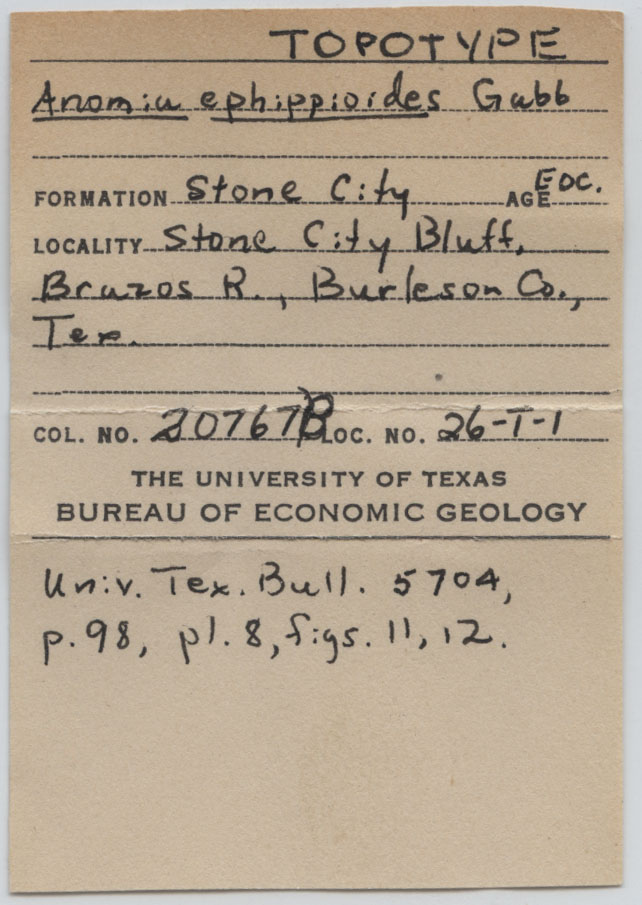 TOPOTYPE
Anomia ephippioides Gabb
FORMATION Stone City AGE Eoc.
LOCALITY Stone City Bluff,
Brazos R., Burleson Co.,
Tex.
COL. NO. 20767B LOC. NO. 26-T-1
THE UNIVERSITY OF TEXAS
BUREAU OF ECONOMIC GEOLOGY
Univ. Tex. Bull. 5704,
p. 98, pl. 8, figs. 11, 12.